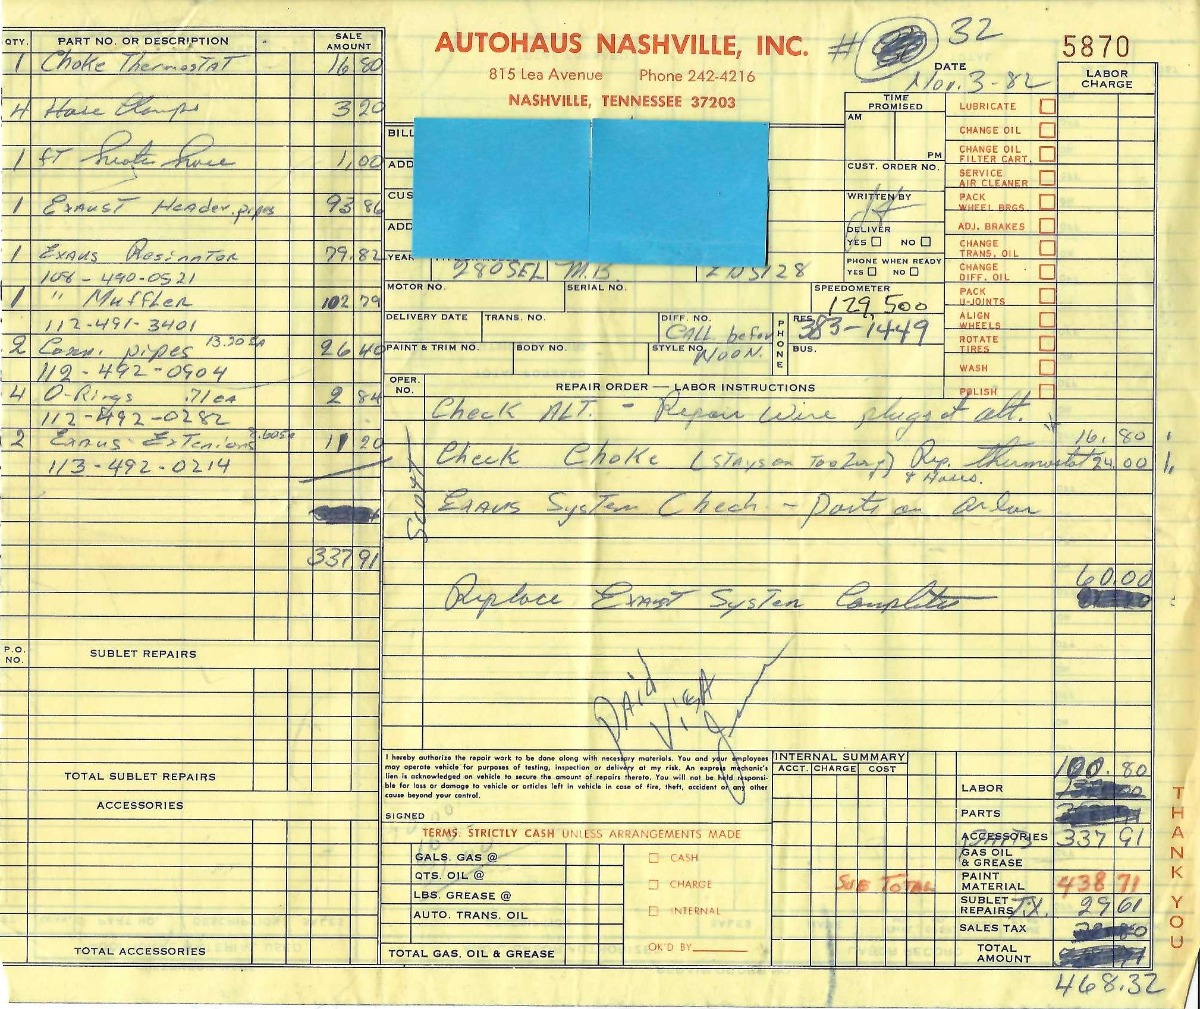 AUTOHAUS NASHVILLE, INC.
815 Lea Avenue Phone 242-4216
NASHVILLE, TENNESSEE 37203
# 32
5870
DATE
Nov. 3-82
QTY. PART NO. OR DESCRIPTION SALE AMOUNT
1 Choke Thermostat 16.80
4 Hose Clamps 3 20
1 ft hose 1.00
1 Exaust Header pipes 93.86
1 Exaus Resinator 79.82
108-490-0521
1 " Muffler 102 79
112-491-3401
2 Conn. pipes 13.20 ea 26 40
112-492-0904
4 O-Rings .71 ea 2 84
112-492-0282
2 Exaus Extenions 5.60 ea 11 20
113-492-0214
337.91
P.O. NO. SUBLET REPAIRS
TOTAL SUBLET REPAIRS
ACCESSORIES
TOTAL ACCESSORIES
BILL
ADD
CUS
ADD
YEAR
280SEL M.B.
MOTOR NO. SERIAL NO. SPEEDOMETER
129,500
DELIVERY DATE TRANS. NO. DIFF. NO. PHONE RES. 383-1449
CALL before NOON.
PAINT & TRIM NO. BODY NO. STYLE NO. BUS.
TIME PROMISED
AM
PM
CUST. ORDER NO.
WRITTEN BY
DELIVER
YES NO
PHONE WHEN READY
YES NO
LABOR CHARGE
LUBRICATE
CHANGE OIL
CHANGE OIL FILTER CART.
SERVICE AIR CLEANER
PACK WHEEL BRGS.
ADJ. BRAKES
CHANGE TRANS. OIL
CHANGE DIFF. OIL
PACK U-JOINTS
ALIGN WHEELS
ROTATE TIRES
WASH
POLISH
OPER. NO. REPAIR ORDER — LABOR INSTRUCTIONS
Check ALT. - Repair wire plugg at alt. 16.80
Check Choke (stays on too long) Rep. thermostat 24.00
& Hoses.
Scott
Exaus System Check - parts on order
60.00
Replace Exaust System Complete
PAID VISA
I hereby authorize the repair work to be done along with necessary materials. You and your employees
may operate vehicle for purposes of testing, inspection or delivery at my risk. An express mechanic's
lien is acknowledged on vehicle to secure the amount of repairs thereto. You will not be held responsi-
ble for loss or damage to vehicle or articles left in vehicle in case of fire, theft, accident or any other
cause beyond your control.
SIGNED
TERMS: STRICTLY CASH UNLESS ARRANGEMENTS MADE
GALS. GAS @
QTS. OIL @
LBS. GREASE @
AUTO. TRANS. OIL
TOTAL GAS, OIL & GREASE
CASH
CHARGE
INTERNAL
OK'D BY
INTERNAL SUMMARY
ACCT. CHARGE COST
LABOR 100.80
PARTS
ACCESSORIES PARTS 337 91
GAS OIL & GREASE
PAINT MATERIAL SUB TOTAL 438 71
SUBLET REPAIRS TX. 29 61
SALES TAX
TOTAL AMOUNT
468.32
THANK YOU